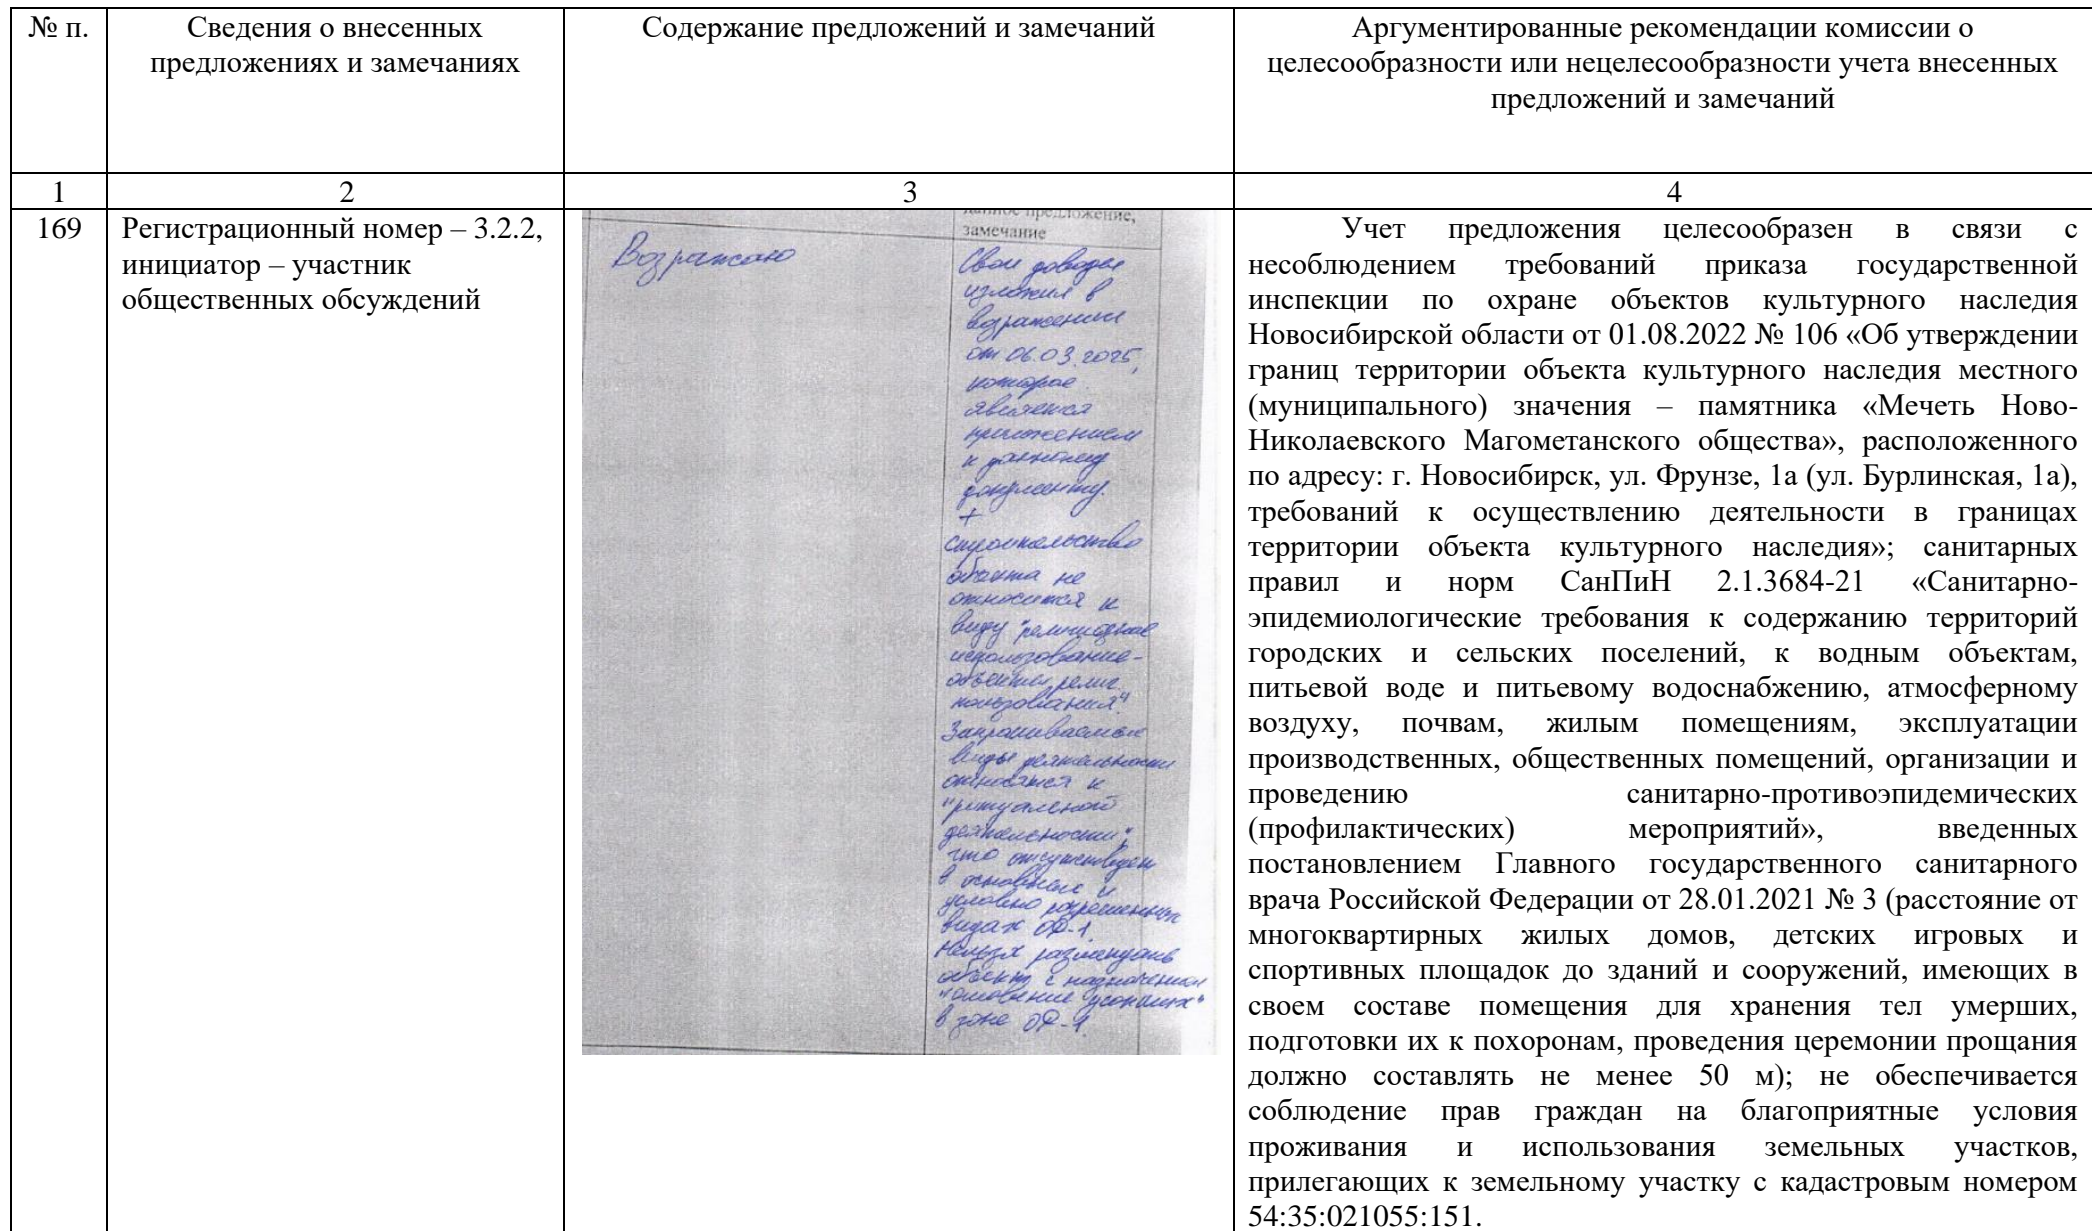 № п.
Сведения о внесенных
предложениях и замечаниях
Содержание предложений и замечаний
Аргументированные рекомендации комиссии о
целесообразности или нецелесообразности учета внесенных
предложений и замечаний
1
2
3
4
169
Регистрационный номер – 3.2.2,
инициатор – участник
общественных обсуждений
предложение,
замечание
Возражаю
Свои доводы
изложил в
возражении
от 06.03.2025,
которое
является
приложением
к данному
документу.
+
Строительство
объекта не
относится к
виду "религиозное
использование-
объекты религ.
использования".
Запрашиваемые
виды деятельности
относятся к
"ритуальной
деятельности",
что отсутствует
в основных и
условно разрешенных
видах ОД-1.
Нельзя размещать
объект с назначением
"омовение усопших"
в зоне ОД-1.
Учет предложения целесообразен в связи с
несоблюдением требований приказа государственной
инспекции по охране объектов культурного наследия
Новосибирской области от 01.08.2022 № 106 «Об утверждении
границ территории объекта культурного наследия местного
(муниципального) значения – памятника «Мечеть Ново-
Николаевского Магометанского общества», расположенного
по адресу: г. Новосибирск, ул. Фрунзе, 1а (ул. Бурлинская, 1а),
требований к осуществлению деятельности в границах
территории объекта культурного наследия»; санитарных
правил и норм СанПиН 2.1.3684-21 «Санитарно-
эпидемиологические требования к содержанию территорий
городских и сельских поселений, к водным объектам,
питьевой воде и питьевому водоснабжению, атмосферному
воздуху, почвам, жилым помещениям, эксплуатации
производственных, общественных помещений, организации и
проведению санитарно-противоэпидемических
(профилактических) мероприятий», введенных
постановлением Главного государственного санитарного
врача Российской Федерации от 28.01.2021 № 3 (расстояние от
многоквартирных жилых домов, детских игровых и
спортивных площадок до зданий и сооружений, имеющих в
своем составе помещения для хранения тел умерших,
подготовки их к похоронам, проведения церемонии прощания
должно составлять не менее 50 м); не обеспечивается
соблюдение прав граждан на благоприятные условия
проживания и использования земельных участков,
прилегающих к земельному участку с кадастровым номером
54:35:021055:151.